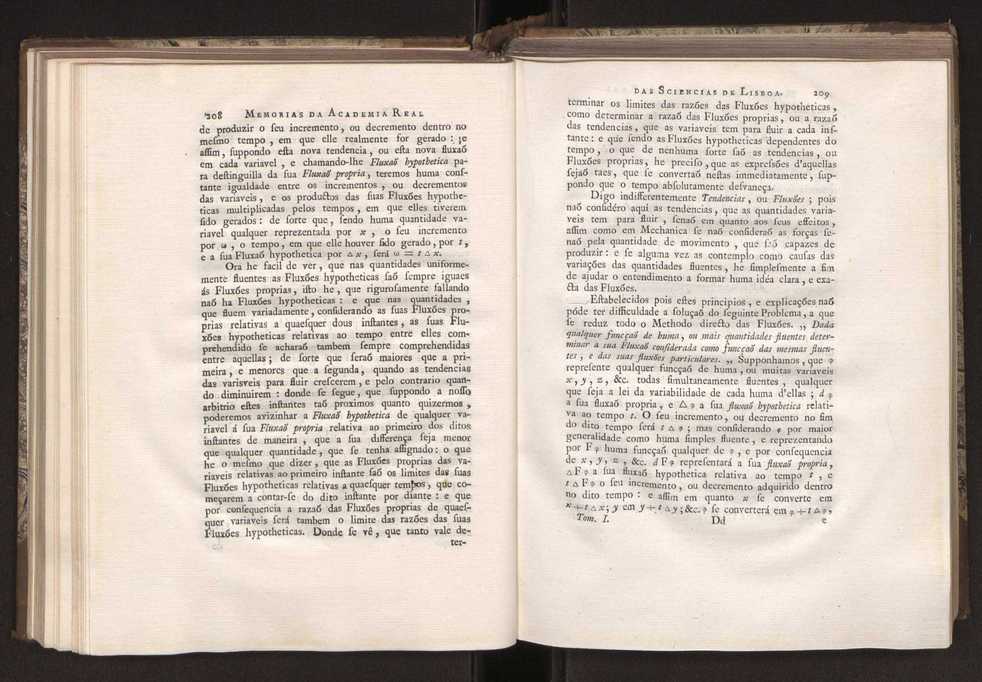 208 MEMORIAS DA ACADEMIA REAL
de produzir o seu incremento, ou decremento dentro no
mesmo tempo, em que elle realmente for gerado: e
assim, suppondo esta nova tendencia, ou esta nova fluxaõ
em cada variavel, e chamando-lhe Fluxaõ hypothetica pa-
ra destinguilla da sua Fluxaõ propria, teremos huma cons-
tante igualdade entre os incrementos, ou decrementos
das variaveis, e os productos das suas Fluxões hypothe-
ticas multiplicadas pelos tempos, em que elles tiverem
sido gerados: de sorte que, sendo huma quantidade va-
riavel qualquer reprezentada por x, o seu incremento
por ω, o tempo, em que elle houver sido gerado, por t,
e a sua Fluxaõ hypothetica por △x, será ω = t△x.
Ora he facil de ver, que nas quantidades uniforme-
mente fluentes as Fluxões hypotheticas saõ sempre iguaes
ás Fluxões proprias, isto he, que rigurosamente fallando
naõ ha Fluxões hypotheticas: e que nas quantidades,
que fluem variadamente, considerando as suas Fluxões pro-
prias relativas a quaesquer dous instantes, as suas Flu-
xões hypotheticas relativas ao tempo entre elles com-
prehendido se acharaõ tambem sempre comprehendidas
entre aquellas; de sorte que seraõ maiores que a pri-
meira, e menores que a segunda, quando as tendencias
das varisveis para fluir crescerem, e pelo contrario quan-
do diminuirem: donde se segue, que suppondo a nosso
arbitrio estes instantes taõ proximos quanto quizermos,
poderemos avizinhar a Fluxaõ hypothetica de qualquer va-
riavel á sua Fluxaõ propria relativa ao primeiro dos ditos
instantes de maneira, que a sua differença seja menor
que qualquer quantidade, que se tenha assignado: o que
he o mesmo que dizer, que as Fluxões proprias das va-
riaveis relativas ao primeiro instante saõ os limites das suas
Fluxões hypotheticas relativas a quaesquer tempos, que co-
meçarem a contar-se do dito instante por diante: e que
por consequencia a razaõ das Fluxões proprias de quaes-
quer variaveis será tambem o limite das razões das suas
Fluxões hypotheticas. Donde se vê, que tanto vale de-
ter-
DAS SCIENCIAS DE LISBOA. 209
terminar os limites das razões das Fluxões hypotheticas,
como determinar a razaõ das Fluxões proprias, ou a razaõ
das tendencias, que as variaveis tem para fluir a cada ins-
tante: e que sendo as Fluxões hypotheticas dependentes do
tempo, o que de nenhuma sorte saõ as tendencias, ou
Fluxões proprias, he preciso, que as expressões d'aquellas
sejaõ taes, que se convertaõ nestas immediatamente, sup-
pondo que o tempo absolutamente desvaneça.
Digo indifferentemente Tendencias, ou Fluxões; pois
naõ considéro aqui as tendencias, que as quantidades varia-
veis tem para fluir, senaõ em quanto aos seus effeitos,
assim como em Mechanica se naõ consideraõ as forças se-
naõ pela quantidade de movimento, que saõ capazes de
produzir: e se alguma vez as contemplo como causas das
variações das quantidades fluentes, he simplesmente a fim
de ajudar o entendimento a formar huma idéa clara, e exa-
cta das Fluxões.
Estabelecidos pois estes principios, e explicações naõ
póde ter difficuldade a soluçaõ do seguinte Problema, a que
se reduz todo o Methodo directo das Fluxões. „ Dada
qualquer funcçaõ de huma, ou mais quantidades fluentes deter-
minar a sua Fluxaõ considerada como funcçaõ das mesmas fluen-
tes, e das suas fluxões particulares. „ Supponhamos, que φ
represente qualquer funcçaõ de huma, ou muitas variaveis
x, y, z, &c. todas simultaneamente fluentes, qualquer
que seja a lei da variabilidade de cada huma d'ellas; dφ
a sua fluxaõ propria, e △φ a sua fluxaõ hypothetica relati-
va ao tempo t. O seu incremento, ou decremento no fim
do dito tempo será t△φ; mas considerando φ por maior
generalidade como huma simples fluente, e reprezentando
por Fφ huma funcçaõ qualquer de φ, e por consequencia
de x, y, z, &c. dFφ representará a sua fluxaõ propria,
△Fφ a sua fluxaõ hypothetica relativa ao tempo t, e
t△Fφ o seu incremento, ou decremento adquirido dentro
no dito tempo: e assim em quanto x se converte em
x+t△x; y em y+t△y; &c. φ se converterá em φ+t△φ,
Tom. I. Dd e